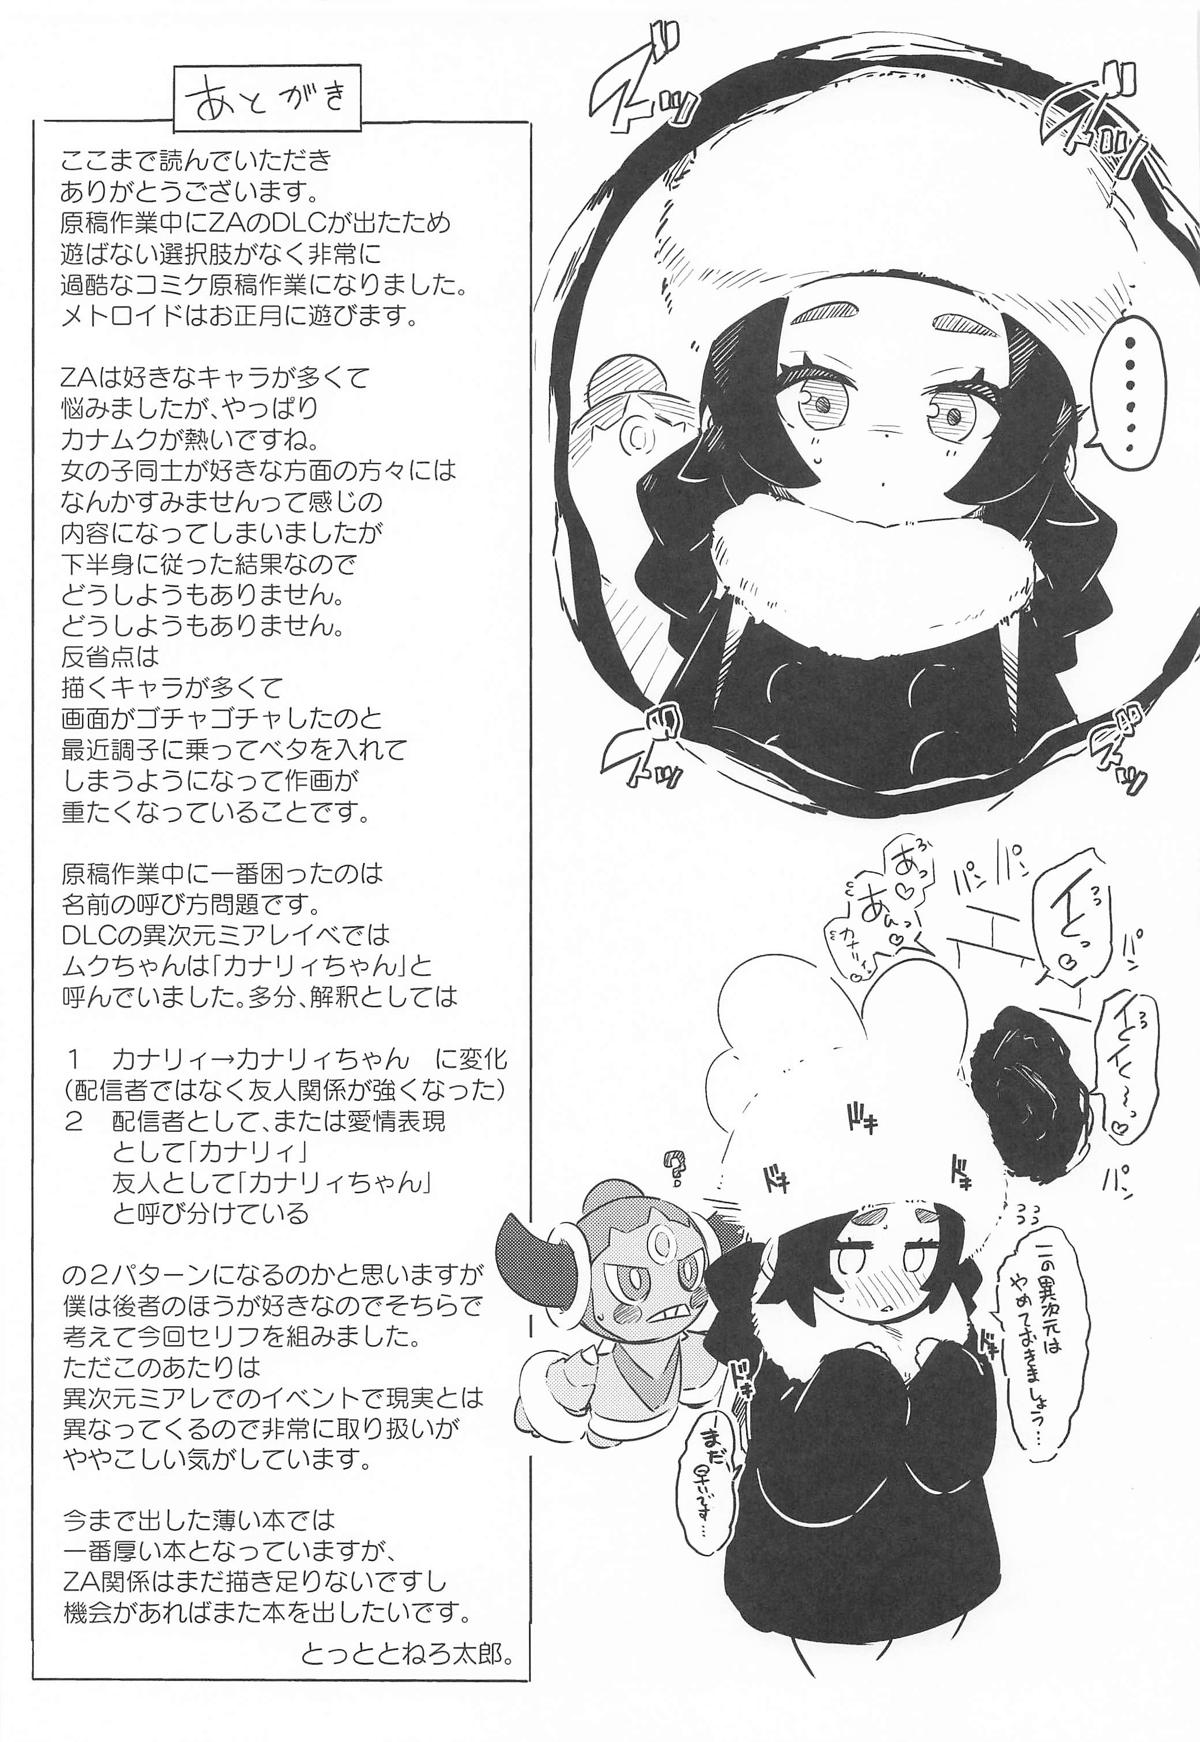 あとがき
ここまで読んでいただき
ありがとうございます。
原稿作業中にZAのDLCが出たため
遊ばない選択肢がなく非常に
過酷なコミケ原稿作業になりました。
メトロイドはお正月に遊びます。
ZAは好きなキャラが多くて
悩みましたが、やっぱり
カナムクが熱いですね。
女の子同士が好きな方面の方々には
なんかすみませんって感じの
内容になってしまいましたが
下半身に従った結果なので
どうしようもありません。
どうしようもありません。
反省点は
描くキャラが多くて
画面がゴチャゴチャしたのと
最近調子に乗ってベタを入れて
しまうようになって作画が
重たくなっていることです。
原稿作業中に一番困ったのは
名前の呼び方問題です。
DLCの異次元ミアレイベでは
ムクちゃんは「カナリィちゃん」と
呼んでいました。多分、解釈としては
1　カナリィ→カナリィちゃん　に変化
（配信者ではなく友人関係が強くなった）
2　配信者として、または愛情表現
として「カナリィ」
友人として「カナリィちゃん」
と呼び分けている
の2パターンになるのかと思いますが
僕は後者のほうが好きなのでそちらで
考えて今回セリフを組みました。
ただこのあたりは
異次元ミアレでのイベントで現実とは
異なってくるので非常に取り扱いが
ややこしい気がしています。
今まで出した薄い本では
一番厚い本となっていますが、
ZA関係はまだ描き足りないですし
機会があればまた本を出したいです。
とっととねろ太郎。
ズズッ
ズズッ
・・・・・・
ズズッ
ズズッ
あっ♡
あんっ♡
カナリィ♡
パンパン
イくっ♡
パン
イくイく～っ♡
パン
ドキ
ドキ
ドキ
?
この異次元は
やめておきましょう…
ドキ
ドキ
まだ
早いです…